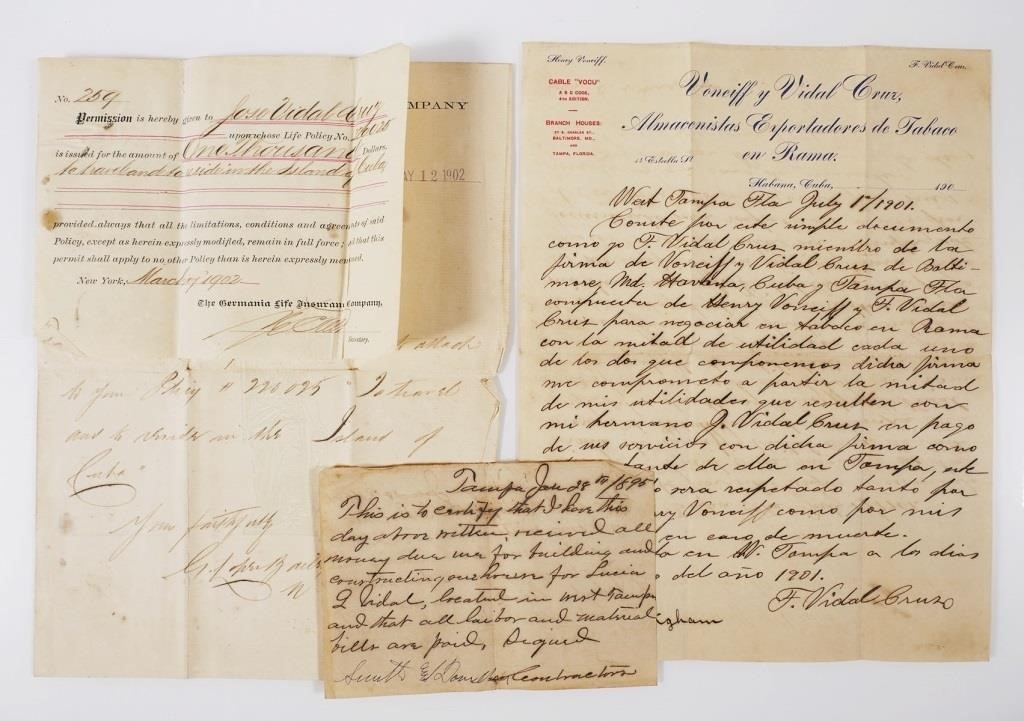 No. 259
Permission is hereby given to Jose Vidal Cruz
upon whose Life Policy No.
is issued for the amount of One Thousand Dollars,
to travel and to reside in the Island of Cuba,
provided always that all the limitations, conditions and agreements of said
Policy, except as herein expressly modified, remain in full force; that this
permit shall apply to no other Policy than is herein expressly
New York, March 1902
The Germania Life Insurance Company,
Secretary.
OMPANY
AY 12 1902
attach
to your Policy # 220095 "To travel
and to reside in the Island of
Cuba"
Your faithfully
Tampa Jan 28th 1895
This is to certify that I have this
day above written, recieved all
money due me for building and
constructing one house for Lucia
Q Vidal, located in west Tampa
and that all laibor and material
bills are paid, Signed
Smith & Contractors
Henry Vonciff.
F. Vidal Cruz.
CABLE "VOCU"
A B C CODE,
4TH EDITION.
BRANCH HOUSES:
S. CHARLES ST.,
BALTIMORE, MD.,
AND
TAMPA, FLORIDA.
Vonciff y Vidal Cruz,
Almacenistas Exportadores de Tabaco
en Rama.
Estrella St.
Habana, Cuba, 190
West Tampa Fla July 1st/1901.
Conste por este simple documento
como yo F. Vidal Cruz miembro de la
firma de Vonciff y Vidal Cruz de Balti-
more, Md, Havana, Cuba y Tampa Fla
compuesta de Henry Vonciff y F. Vidal
Cruz para negociar en tabaco en Rama
con la mitad de utilidad cada uno
de los dos que componemos dicha firma
me comprometo a partir la mitad
de mis utilidades que resulten con
mi hermano J. Vidal Cruz en pago
de sus servicios con dicha firma como
tante de ella en Tampa, este
sera respetado tanto por
ry Vonciff como por mis
en caso de muerte.
en W. Tampa a los dias
del año 1901.
F. Vidal Cruz
gham